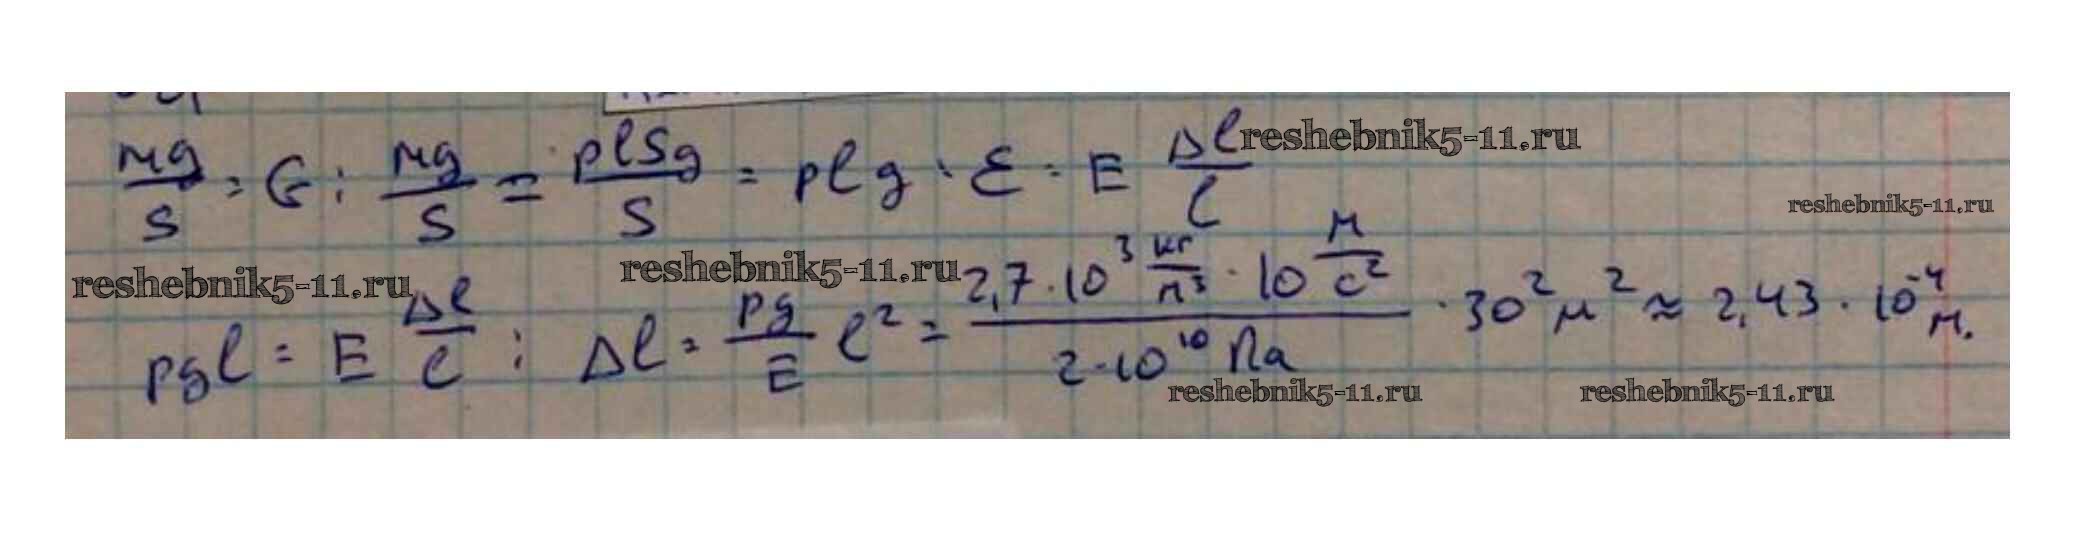 mg/S = G; mg/S = ρlSg/S = ρlg; Ɛ = E Δl/l reshebnik5-11.ru
reshebnik5-11.ru
reshebnik5-11.ru reshebnik5-11.ru
ρgl = E Δl/l; Δl = ρg/E l² = 2,7·10³ кг/м³ · 10 м/с² / 2·10¹⁰ Па · 30² м² ≈ 2,43 · 10⁻⁴ м.
reshebnik5-11.ru reshebnik5-11.ru